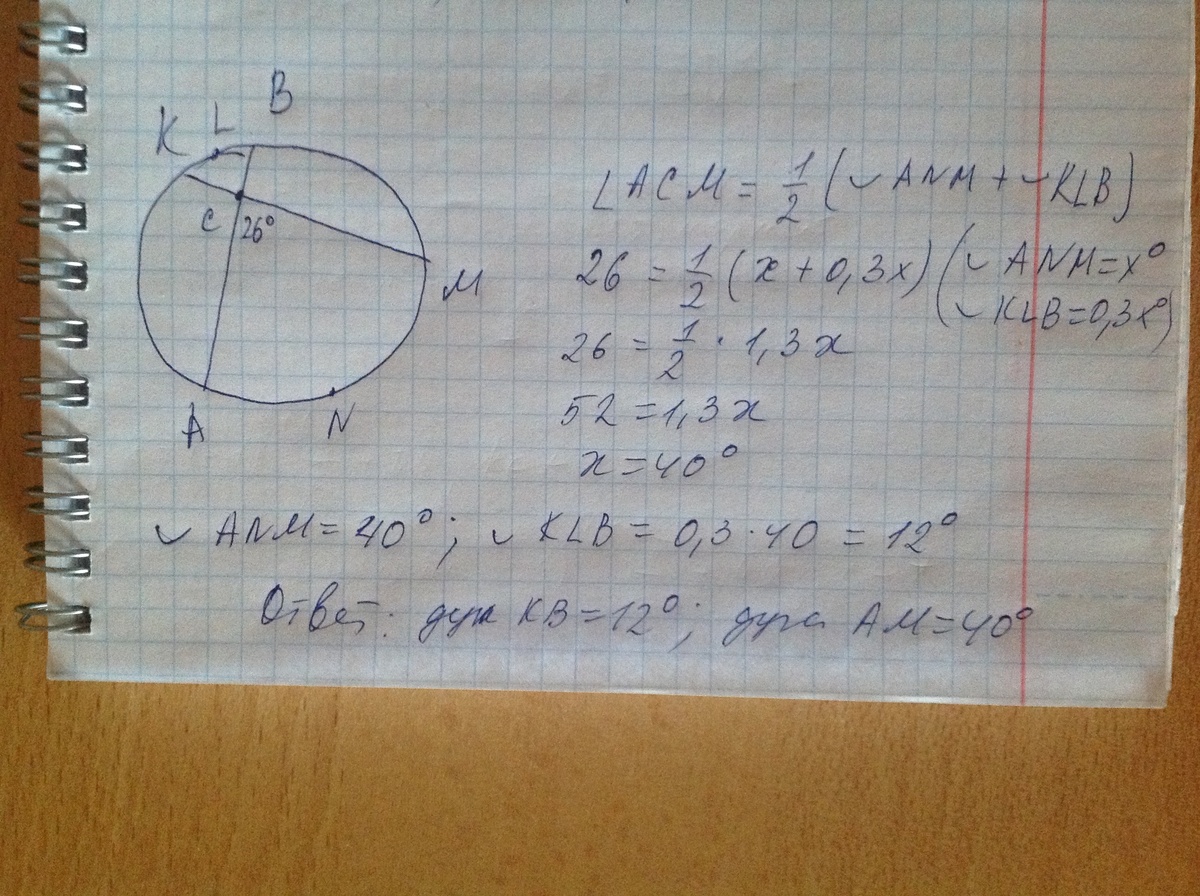 B
K L
C 26°
M
A N
∠ACM = 1/2 (◡ANM + ◡KLB)
26 = 1/2 (x + 0,3x) (◡ANM = x°
◡KLB = 0,3x°)
26 = 1/2 · 1,3x
52 = 1,3x
x = 40°
◡ANM = 40°; ◡KLB = 0,3 · 40 = 12°
Ответ: дуга KB = 12°; дуга AM = 40°